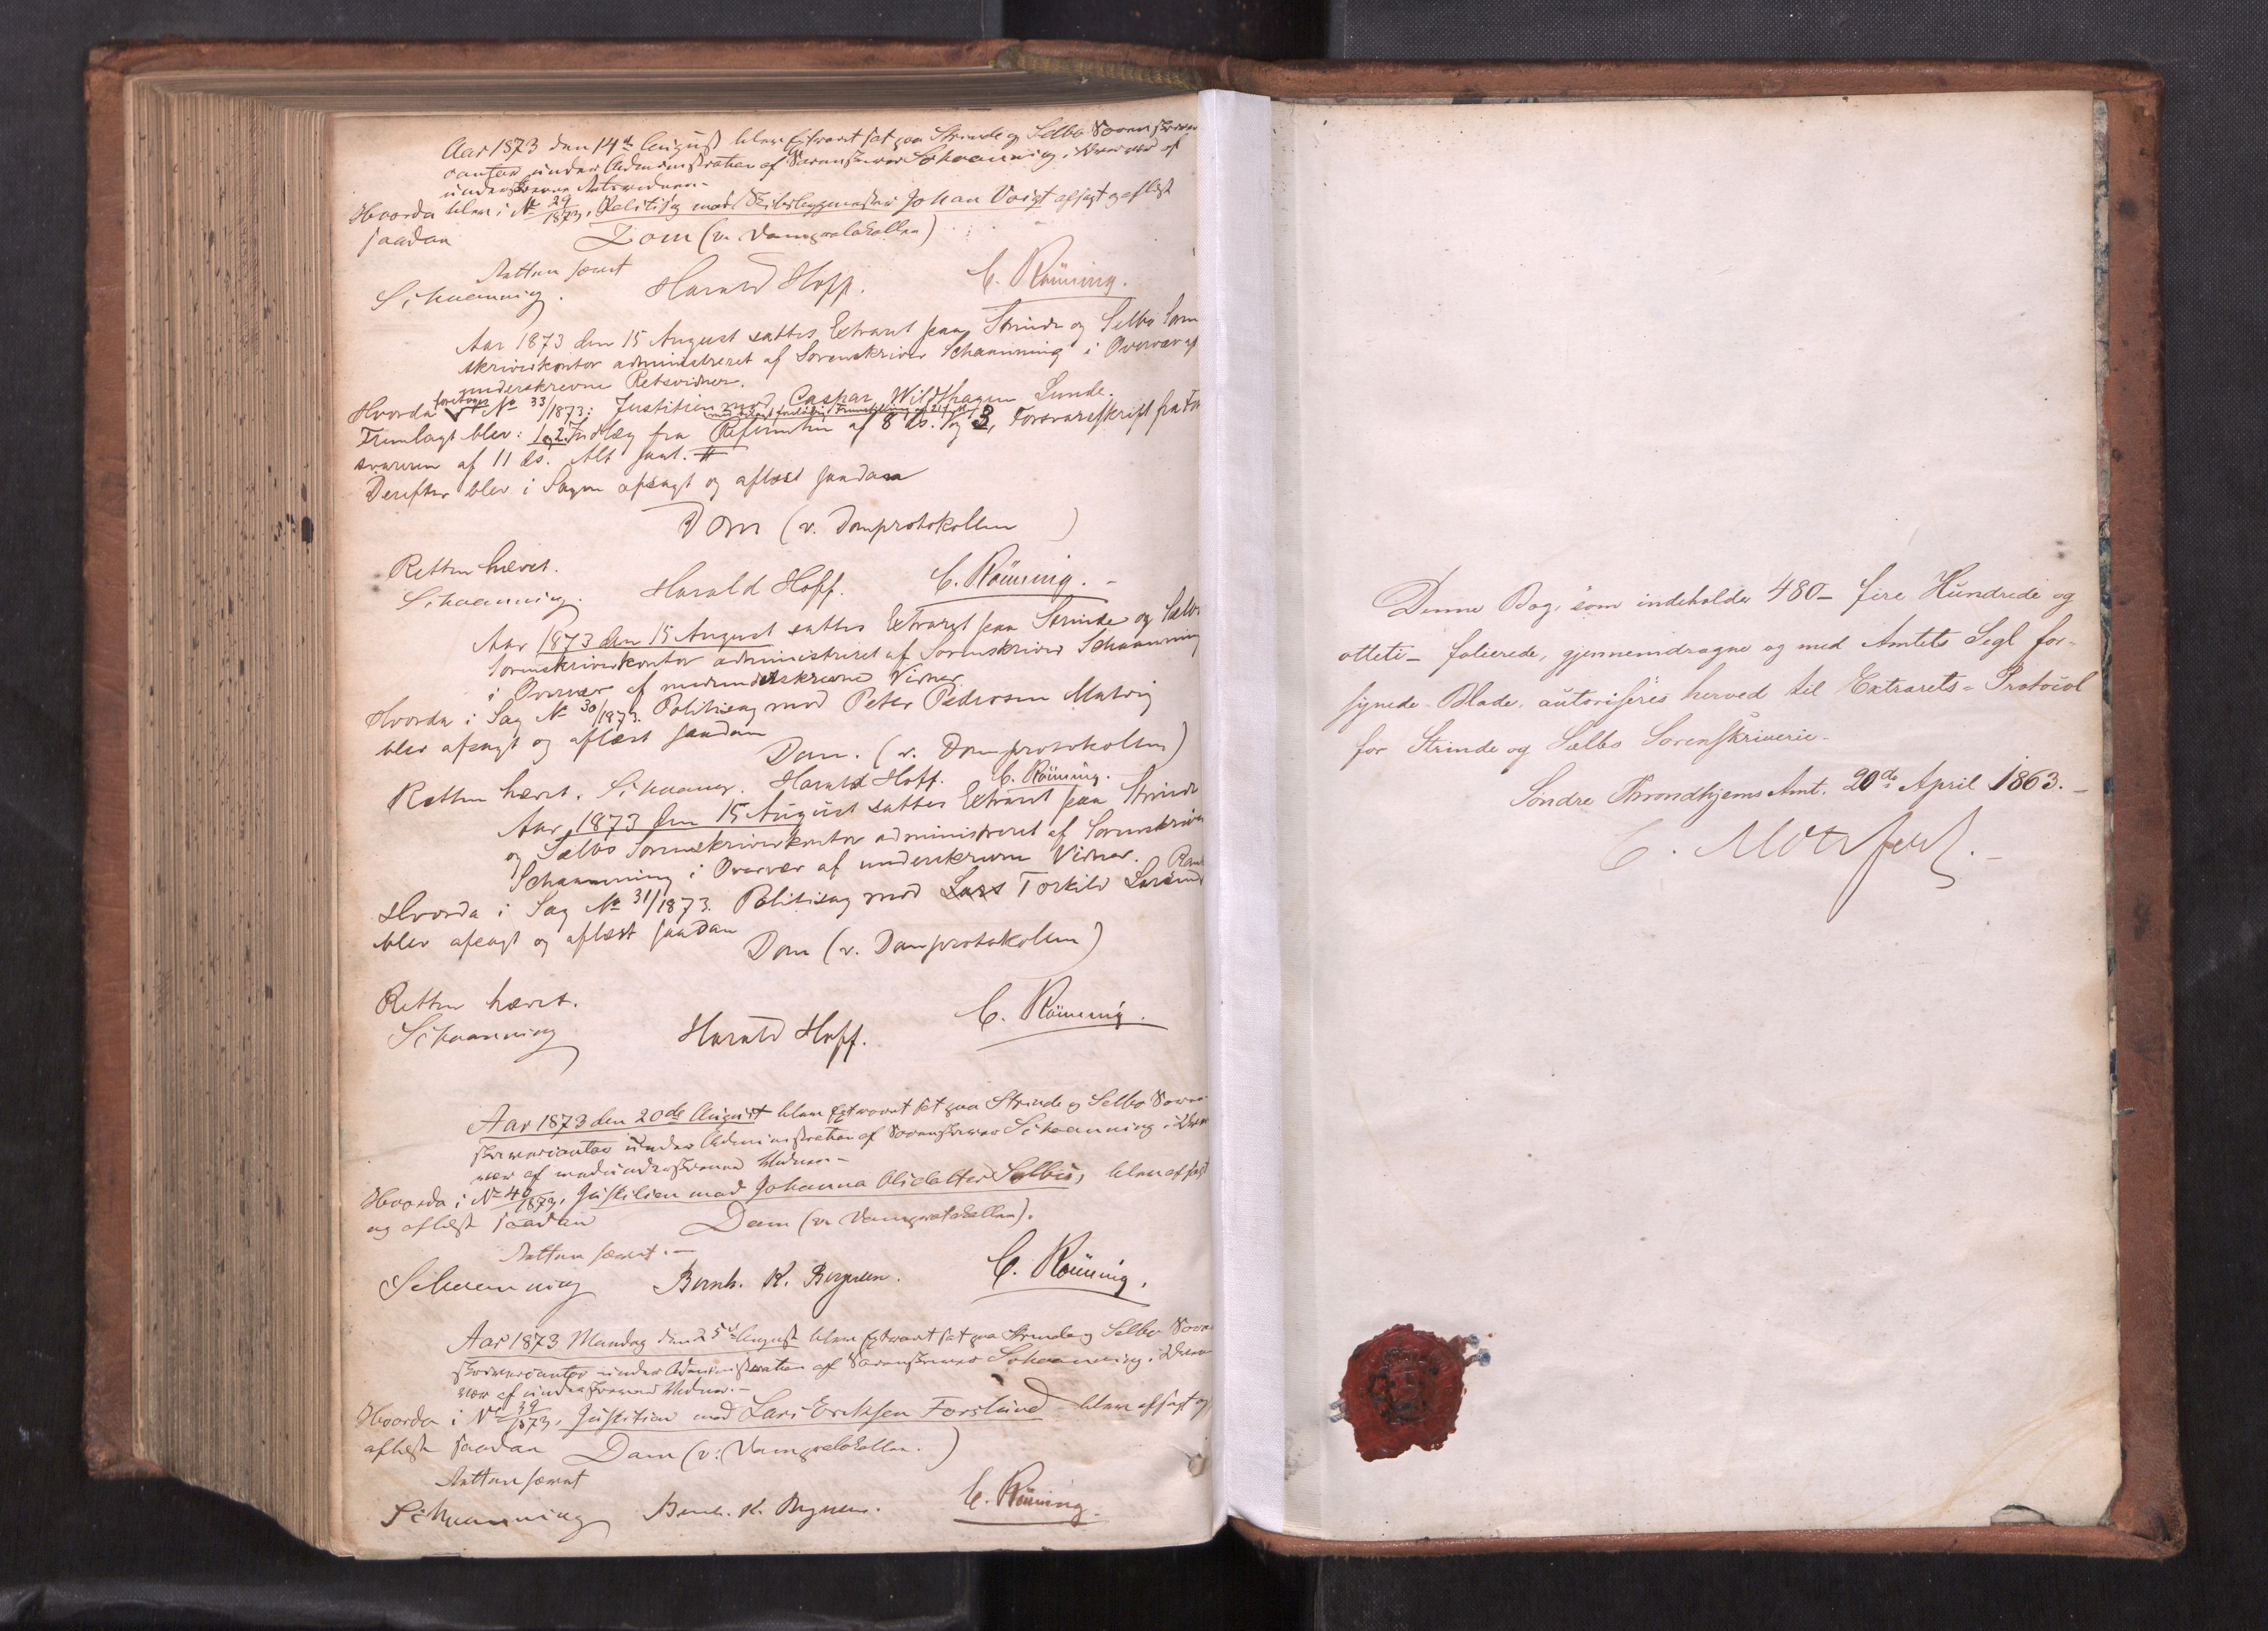 Aar 1873 den 14de August blev Extraret sat paa Strinde og Selbo Sorenskriver
contor under Administration af Sorenskriver Schaanning, i Overvær af
underskrevne Retsvidner.-
Hvorda blev i No 29/1873, Politisag mod Skibsbygmester Johan Voigt afsagt og aflæst
saadan Dom (v. Domprotokollen)
Retten hævet
Schaanning. Harald Hoff. C. Rönning.
Aar 1873 den 15 August sattes Extraret paa Strinde og Selbo Soren
skriverkontor administreret af Sorenskriver Schaanning i Overvær af
underskrevne Retsvidner.
Hvorda foretoges No 33/1873: Justitien mod Caspar Wildhagen Lunde.
Fremlagt blev: 1 og 2. Indlæg fra Referenten af 8 ds. og 3, Forsvarsskrift fra For
svareren af 11 ds. Alt saal. #
Derefter blev i Sagen afsagt og aflæst saadan
Dom (v. Domprotokollen )
Retten hævet.
Schaanning. Harald Hoff. C. Rönning. -
Aar 1873 den 15 August sattes Extraret paa Strinde og Sælbo
Sorenskriverkontor administreret af Sorenskriver Schaanning
i Overvær af medunderskrevne Vidner.
Hvorda i Sag No 30/1873. Politisag mod Peter Pedersen Malvig
blev afsagt og aflæst saadan
Dom. (v. Domprotokollen)
Retten hævet. Schaanning. Harald Hoff. C. Rönning.
Aar 1873 den 15 August sattes Extraret paa Strinde
og Sælbo Sorenskriverkontor administreret af Sorenskriver
Schaanning i Overvær af underskrevne Vidner.
Hvorda i Sag No 31/1873. Politisag mod Lars Torkild
blev afsagt og aflæst saadan
Dom (v. Domprotokollen)
Retten hævet.
Schaanning Harald Hoff. C. Rönning.
Aar 1873 den 20de August blev Extraret sat paa Strinde og Selbo Soren
skrivercontor under Administration af Sorenskriver Schaanning i Over
vær af medunderskrevne Vidner.-
Hvorda i No 40/1873, Justitien mod Johanna Olidatter Selbu, blev afsagt
og aflæst saadan Dom (v. Domprotokollen).
Retten hævet.-
Schaanning Bernh. K. Bergersen. C. Rönning.
Aar 1873 Mandag den 25de August blev Extraret sat paa Strinde og Selbo Soren
skrivercontor under Administration af Sorenskriver Schaanning i Over
vær af underskrevne Vidner.-
Hvorda i No 39/1873, Justitien mod Lars Eriksen Forslund blev afsagt og
aflæst saadan Dom (v. Domprotokollen.)
Retten hævet
Schaanning Bernh. K. Bergersen. C. Rönning.
Denne Bog, som indeholder 480- fire Hundrede og
otteti- folierede, gjennemdragne og med Amtets Segl for-
synede Blade, autoriseres herved til Extrarets-Protocol
for Strinde og Sælbo Sorenskriverie.
Söndre Throndhjems Amt. 20de April 1863.-
C. Motzfeldt.-